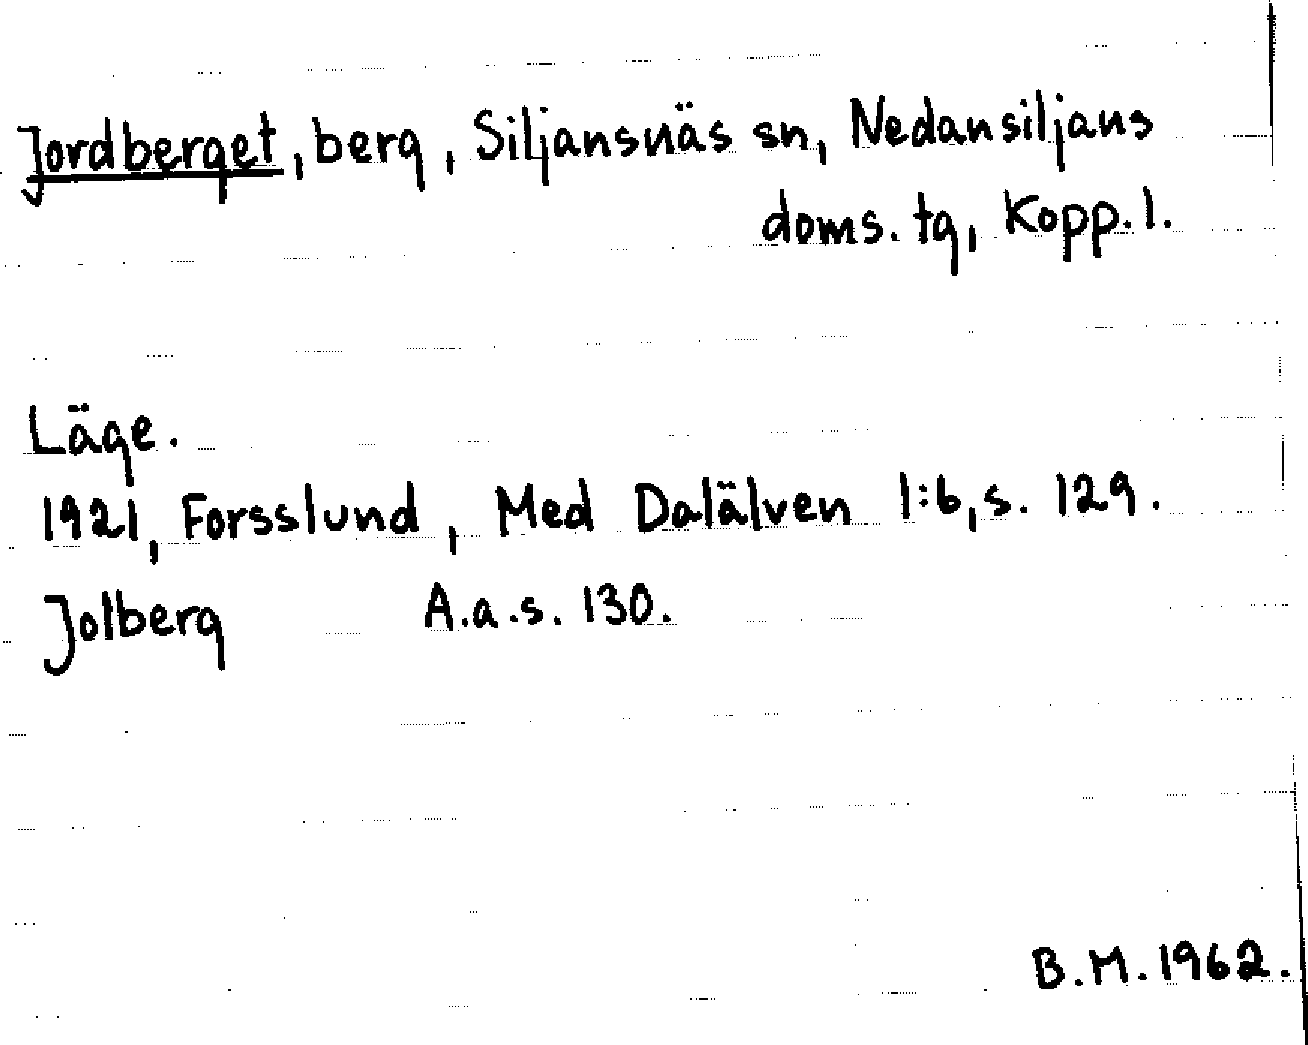 Jordberget, berg, Siljansnäs sn, Nedansiljans
doms. tg, Kopp. l.
Läge.
1921, Forsslund, Med Dalälven 1:6, s. 129.
Jolberg A.a.s. 130.
B.M. 1962.